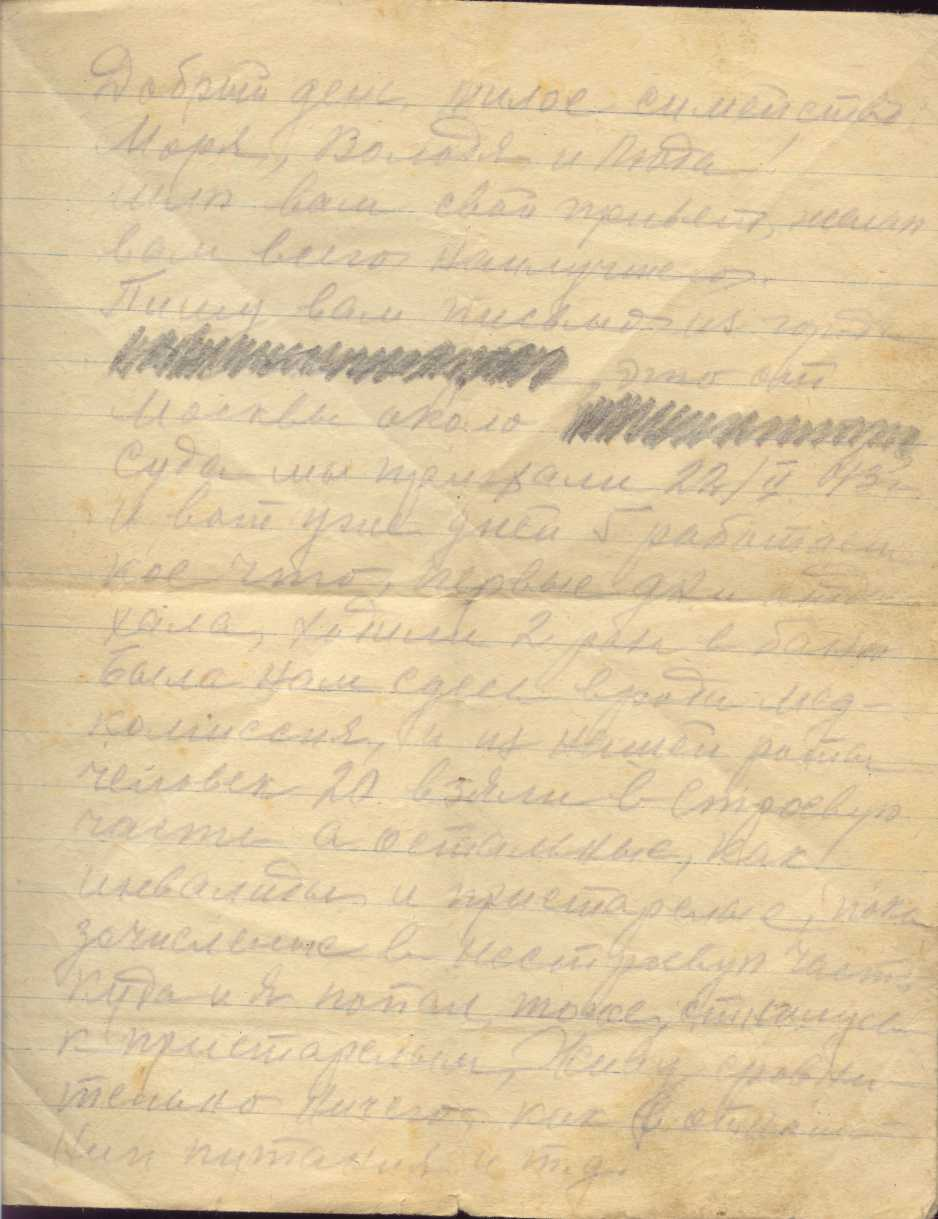 Добрый день, милое симейство
Моря, Володя и Люда!
Шлю вам свой привет, желаю
вам всего наилучшего.
Пишу вам письмо из города
, это от
Москвы около
Суда мы приехали 22/II 43 г.
И вот уже дней 5 работаем
кое что, первые дни отды
хала, ходили 2 раз в баню
Была нам сдесь вроди мед-
комиссия, и из нашей роты
человек 20 взяли в строевую
части а остальные, как
инвалиды и пристарелые, пока
зачислены в нестроевую часть,
куда и я попал, тоже,
к пристарелым, Живу сравни
тельно ничего, как в отноше
нии питания и т.д.